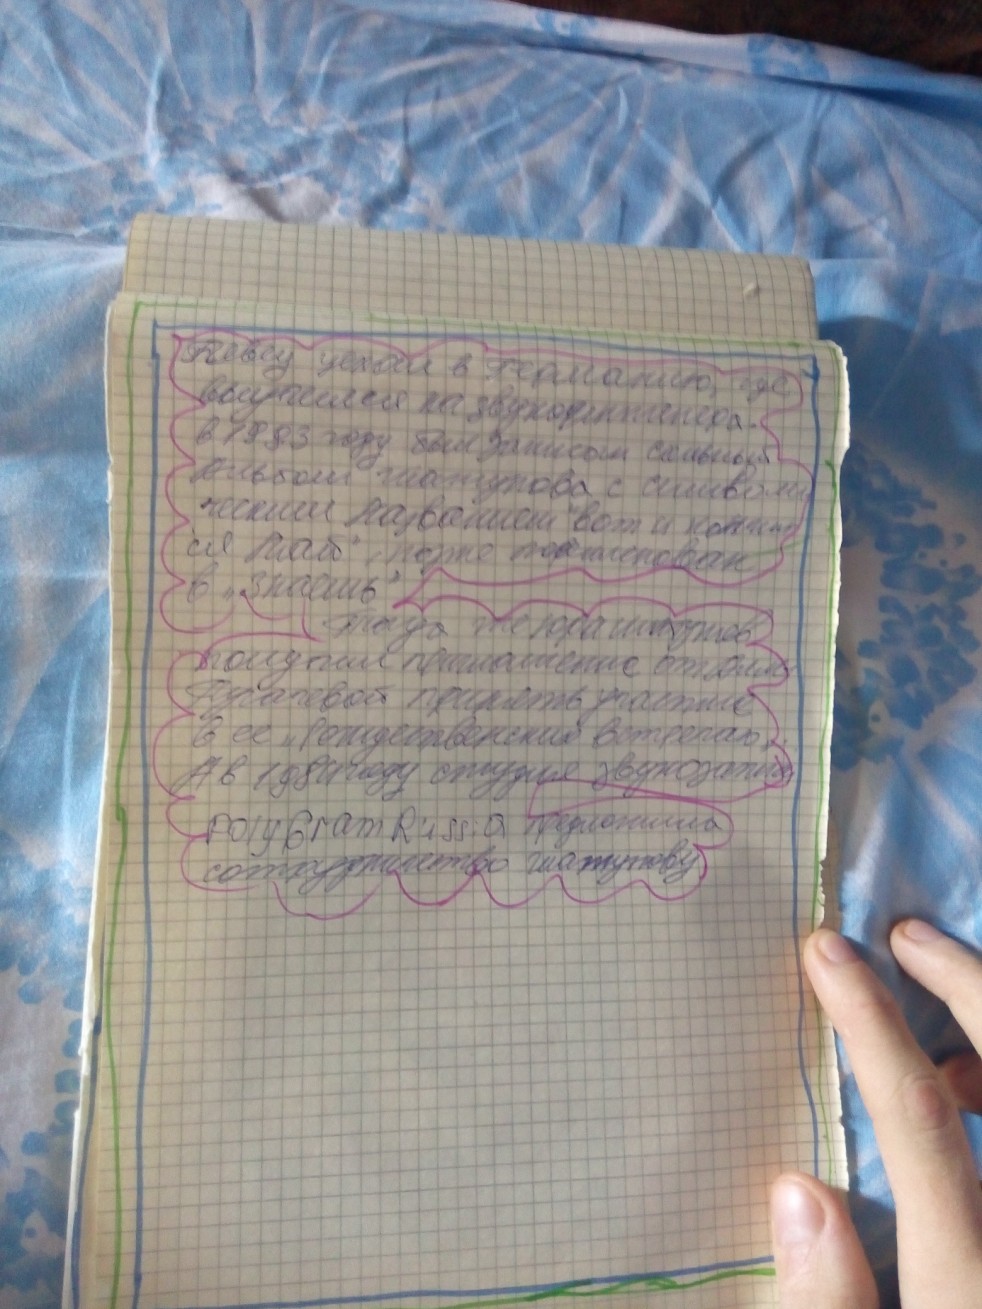 Певец уехал в Германию, где
выучился на звукорежиссёра.
в 1993 году был записан сольный
альбом шатунова с символи
ческим названием "вот и кончил
ся Май", позже
в „Знаешь"
Тогда же Юра шатунов
получил приглашение от Аллы
Пугачевой принять участие
в ее „Рождественских встречах"
А в году студия звукозаписи
PolyGram Russia предложила
сотрудничество шатунову